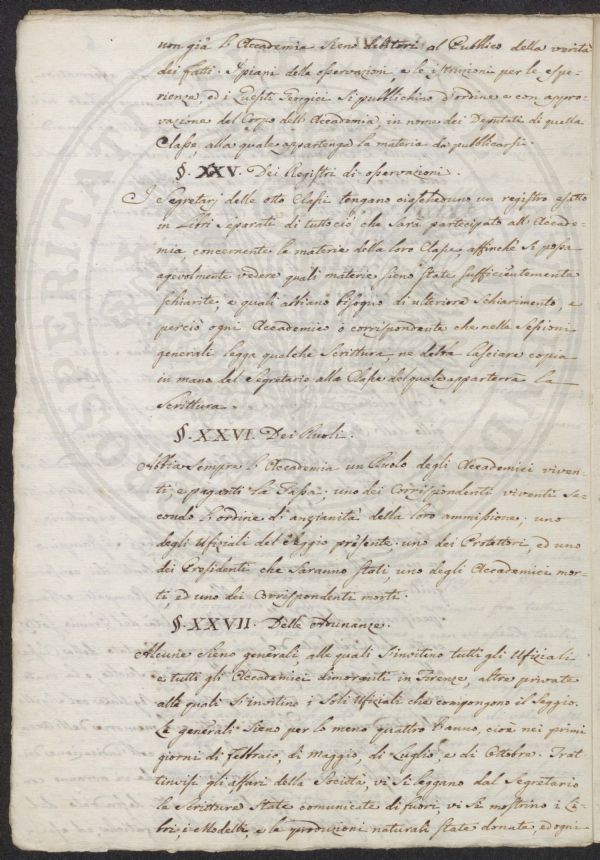 non già l'Accademia sieno debitori al Pubblico della verità
dei fatti. I piani delle osservazioni, e le istruzioni per le espe-
rienze, ed i Quesiti Georgici si pubblichino d'ordine e con appro-
vazione del Corpo dell'Accademia, in nome dei Deputati di quella
Classe, alla quale appartenga la materia da pubblicarsi.
§. XXV. Dei Registri di osservazioni.
I Segretarj delle otto Classi tengano ciascheduno un registro esatto
in Libri separati di tutto ciò che sarà partecipato all'Accade-
mia concernente le materie della loro Classe, affinchè si possa
agevolmente vedere quali materie sieno state sufficientemente
schiarite, e quali abbieno bisogno di ulteriore schiarimento, e
perciò ogni Accademico o corrispondente che nelle sessioni
generali legga qualche scrittura, ne debba lasciare copia
in mano del Segretario alla Classe del quale apparterrà la
Scrittura.
§. XXVI. Dei Ruoli.
Abbia sempre l'Accademia un Ruolo degli Accademici viven-
ti, e paganti la Tassa; uno dei Corrispondenti viventi se-
condo l'ordine di anzianità della loro ammissione; uno
degli Ufiziali del Seggio presente: uno dei Protettori, ed uno
dei Presidenti che saranno stati, uno degli Accademici mor-
ti, ed uno dei Corrispondenti morti.
§. XXVII. Delle Adunanze.
Alcune sieno generali, alle quali s'invitino tutti gli Ufiziali
e tutti gli Accademici dimoranti in Firenze, altre private
alle quali s'invitino i soli Ufiziali che compongono il Seggio.
Le generali sieno per lo meno quattro l'anno, cioè nei primi
giorni di Febbraio, di Maggio, di Luglio, e di Ottobre. Trat-
tinvisi gli affari della Società, vi si leggano dal Segretario
le Scritture state comunicate di fuori, vi si mostrino i Li-
bri, i Modelli, e le produzioni naturali state donate, ed ogni